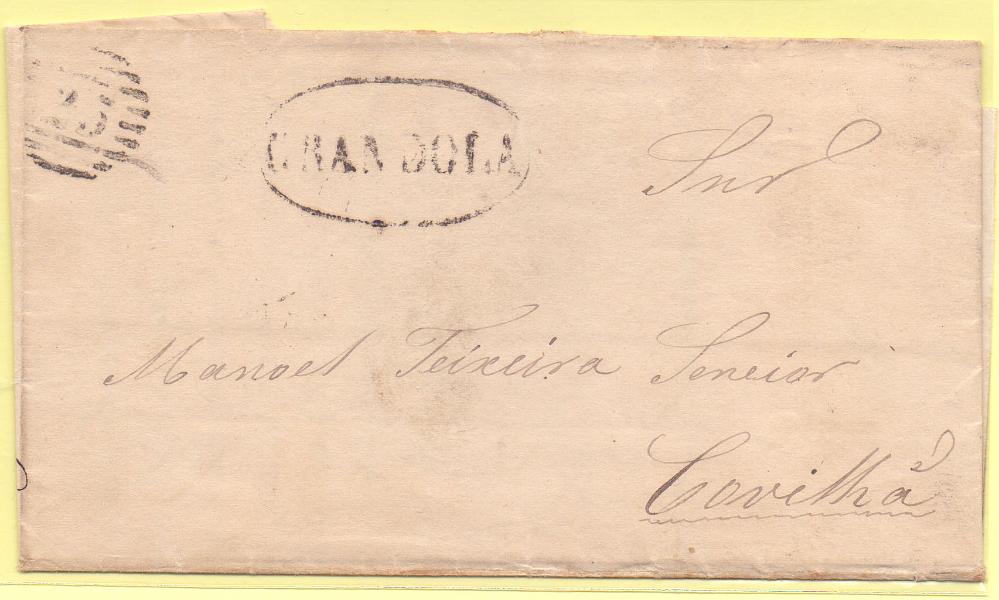 GRANDOLA
Snr
Manoel Teixeira Seneior
Covilhã